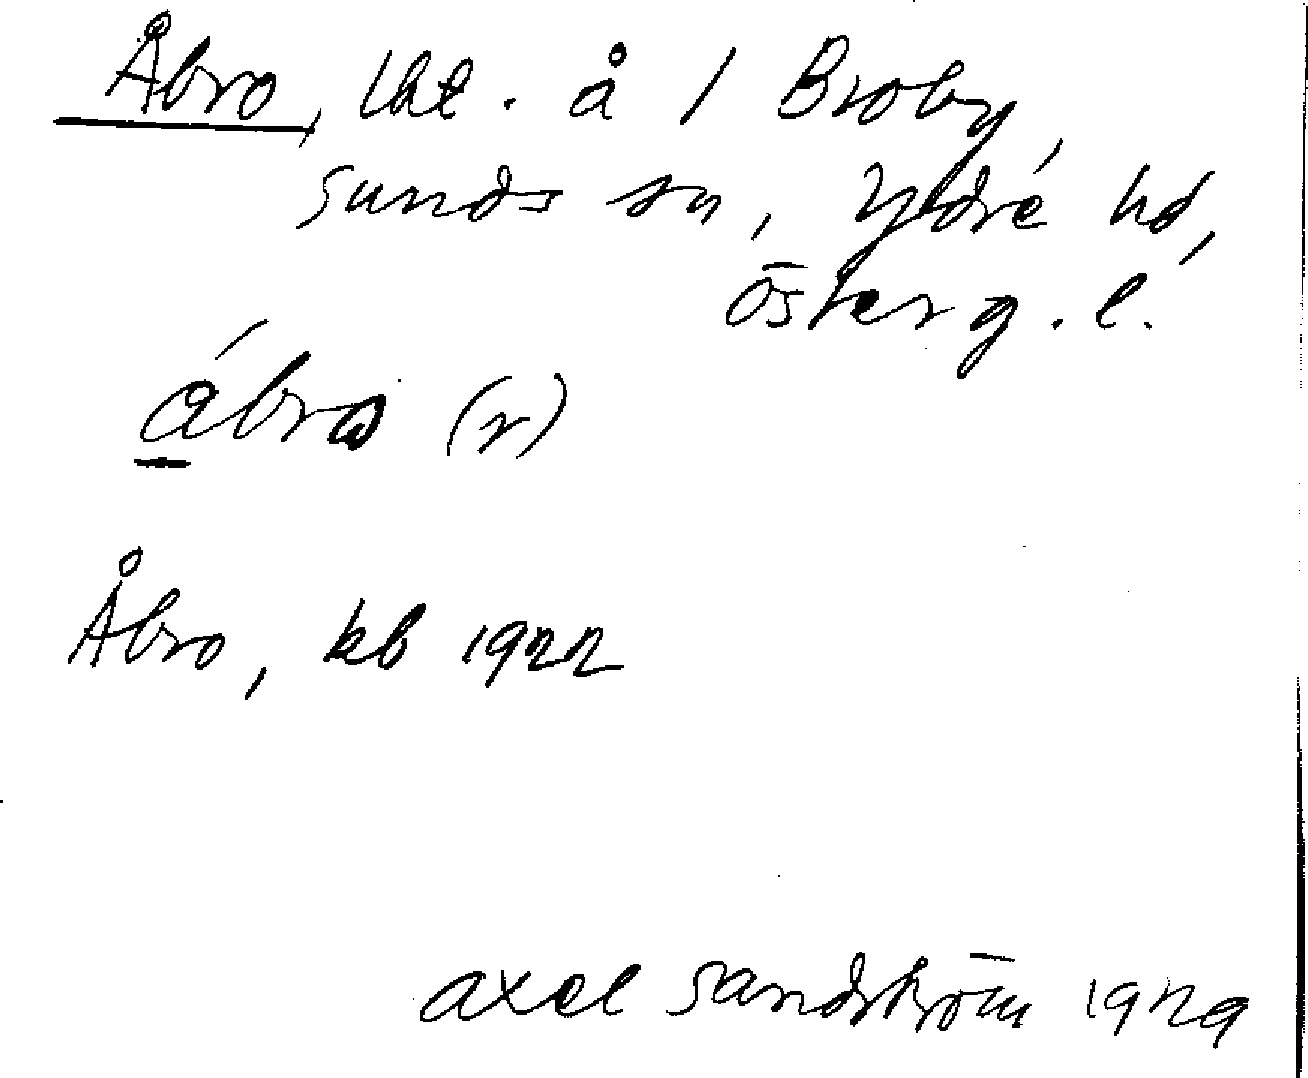 Åbro, lht. å 1 Broby,
Sunds sn, Ydre hd,
Österg. l.
åbro (r)
Åbro, kb 1922
Axel Sandström 1929